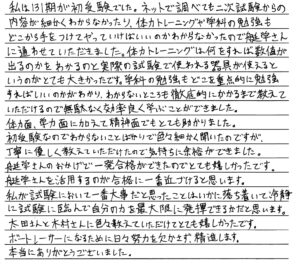 私は131期が初受験でした。ネットで調べても二次試験からの
内容が細かくわからなかったり、体力トレーニングや学科の勉強も
どこから手をつけてやっていけばいいのかわからなかったので艇学さん
に通わせていただきました。体力トレーニングは何をすれば数値が
出るのかをわかるのと実際の試験で使われる器具が使えると
いうのがとても大きかったです。学科の勉強もどこを重点的に勉強
すればいいのかがわかり、わからないところも徹底的にわかるまで教えて
いただけるので無駄なく効率良く学ぶことができました。
体力面、学力面に加えて精神面でもとても助かりました。
初受験なのでわからないことばかりで色々細かく聞いたのですが、
丁寧に優しく教えていただけたので気持ちに余裕ができました。
艇学さんのおかげで一発合格ができたのでとても嬉しかったです。
艇学さんを活用するのが合格に一番近づけると思います。
私が試験において一番大事だと思ったことはいかに落ち着いて冷静
に試験に臨んで自分の力を最大限に発揮できるかだと思います。
太田さんと木村さんに色々教えていただけてとても嬉しかったです。
ボートレーサーになるために日々努力を欠かさず精進します。
本当にありがとうございました。